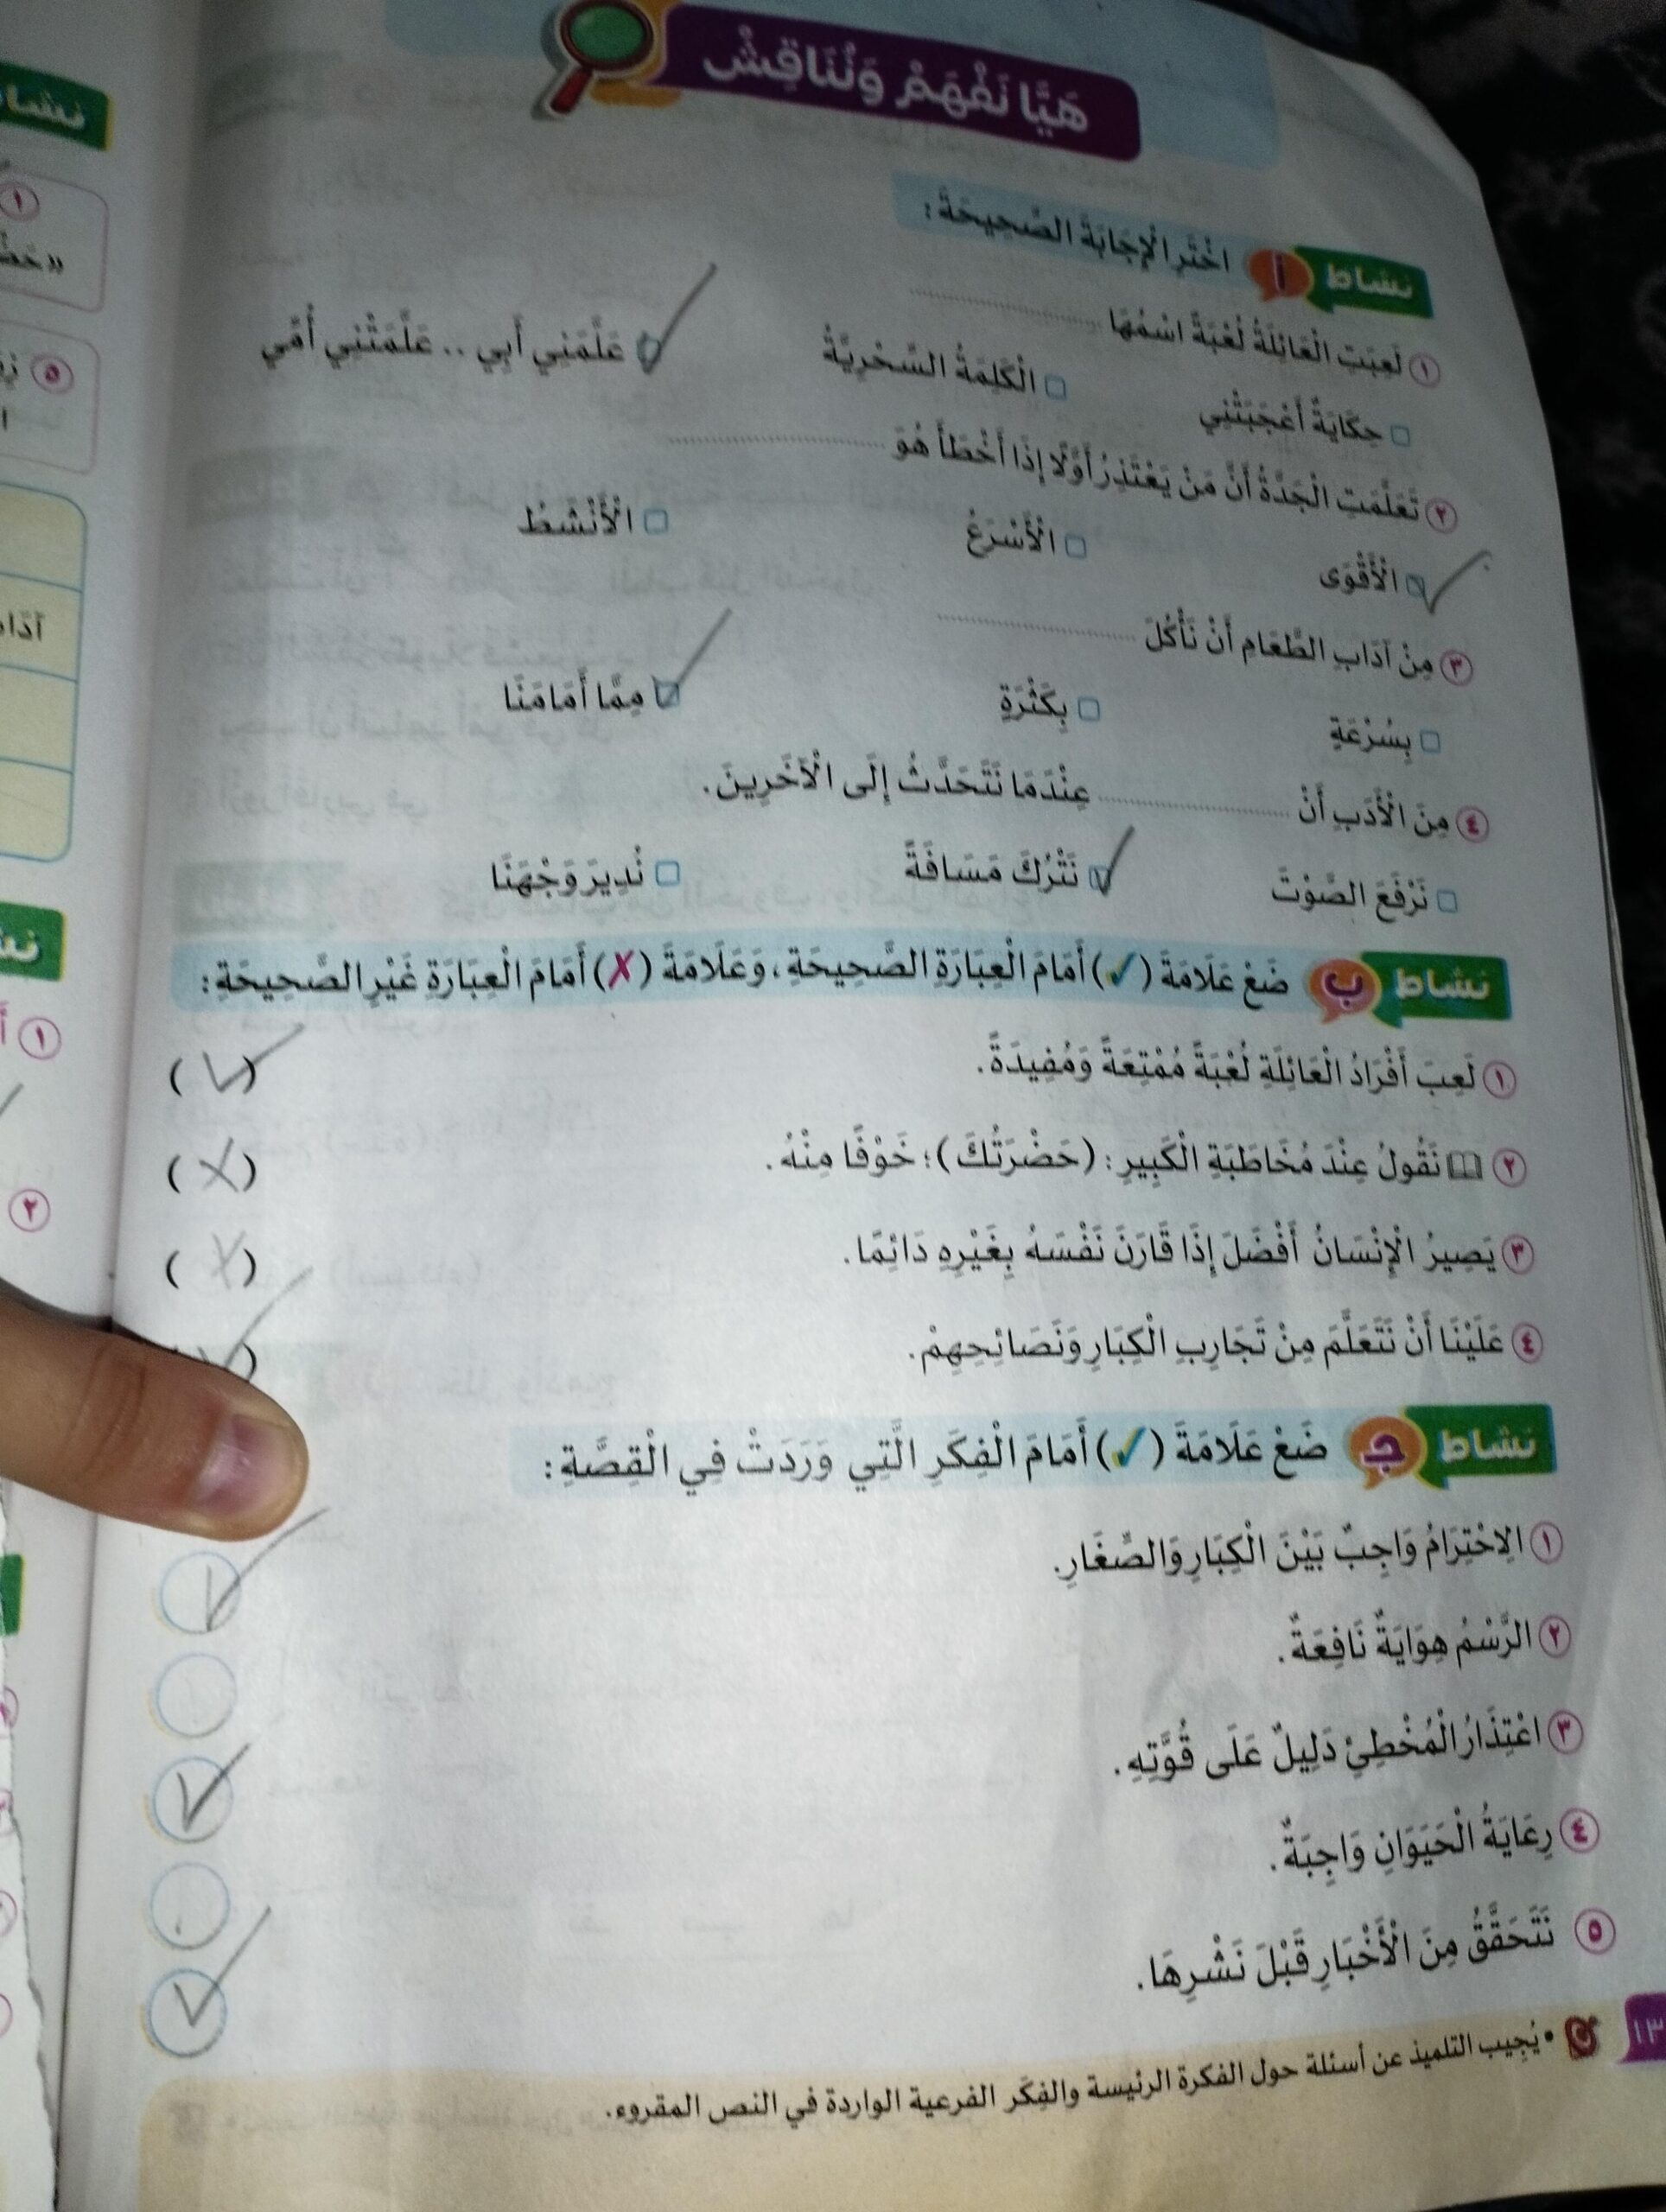 هَيَّا نَفْهَمْ وَنُنَاقِشْ
نشاط أ اخْتَرِ الْإِجَابَةَ الصَّحِيحَةَ :
١ لَعِبَتِ الْعَائِلَةُ لُعْبَةً اسْمُهَا ..........
حِكَايَةٌ أَعْجَبَتْنِي الْكَلِمَةُ السِّحْرِيَّةُ عَلَّمَنِي أَبِي .. عَلَّمَتْنِي أُمِّي
٢ تَعَلَّمَتِ الْجَدَّةُ أَنَّ مَنْ يَعْتَذِرُ أَوَّلًا إِذَا أَخْطَأَ هُوَ ..........
الْأَقْوَى الْأَسْرَعُ الْأَنْشَطُ
٣ مِنْ آدَابِ الطَّعَامِ أَنْ نَأْكُلَ ..........
بِسُرْعَةٍ بِكَثْرَةٍ مِمَّا أَمَامَنَا
٤ مِنَ الْأَدَبِ أَنْ .......... عِنْدَمَا نَتَحَدَّثُ إِلَى الْآخَرِينَ.
نَرْفَعَ الصَّوْتَ نَتْرُكَ مَسَافَةً نُدِيرَ وَجْهَنَا
نشاط ب ضَعْ عَلَامَةَ (✓) أَمَامَ الْعِبَارَةِ الصَّحِيحَةِ، وَعَلَامَةَ (✗) أَمَامَ الْعِبَارَةِ غَيْرِ الصَّحِيحَةِ :
١ لَعِبَ أَفْرَادُ الْعَائِلَةِ لُعْبَةً مُمْتِعَةً وَمُفِيدَةً. (✓)
٢ نَقُولُ عِنْدَ مُخَاطَبَةِ الْكَبِيرِ : (حَضْرَتُكَ)؛ خَوْفًا مِنْهُ. (✗)
٣ يَصِيرُ الْإِنْسَانُ أَفْضَلَ إِذَا قَارَنَ نَفْسَهُ بِغَيْرِهِ دَائِمًا. (✗)
٤ عَلَيْنَا أَنْ نَتَعَلَّمَ مِنْ تَجَارِبِ الْكِبَارِ وَنَصَائِحِهِمْ. (✓)
نشاط جـ ضَعْ عَلَامَةَ (✓) أَمَامَ الْفِكَرِ الَّتِي وَرَدَتْ فِي الْقِصَّةِ :
١ الِاحْتِرَامُ وَاجِبٌ بَيْنَ الْكِبَارِ وَالصِّغَارِ. ✓
٢ الرَّسْمُ هِوَايَةٌ نَافِعَةٌ.
٣ اعْتِذَارُ الْمُخْطِئِ دَلِيلٌ عَلَى قُوَّتِهِ. ✓
٤ رِعَايَةُ الْحَيَوَانِ وَاجِبَةٌ.
٥ نَتَحَقَّقُ مِنَ الْأَخْبَارِ قَبْلَ نَشْرِهَا. ✓
• يُجِيب التلميذ عن أسئلة حول الفكرة الرئيسة والفِكَر الفرعية الواردة في النص المقروء.
١٣
نشا
١
٥
آدَا
١
٢